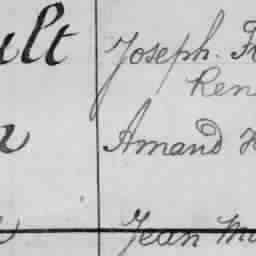 ult Joseph. F
Ren
Amand H
Jean M